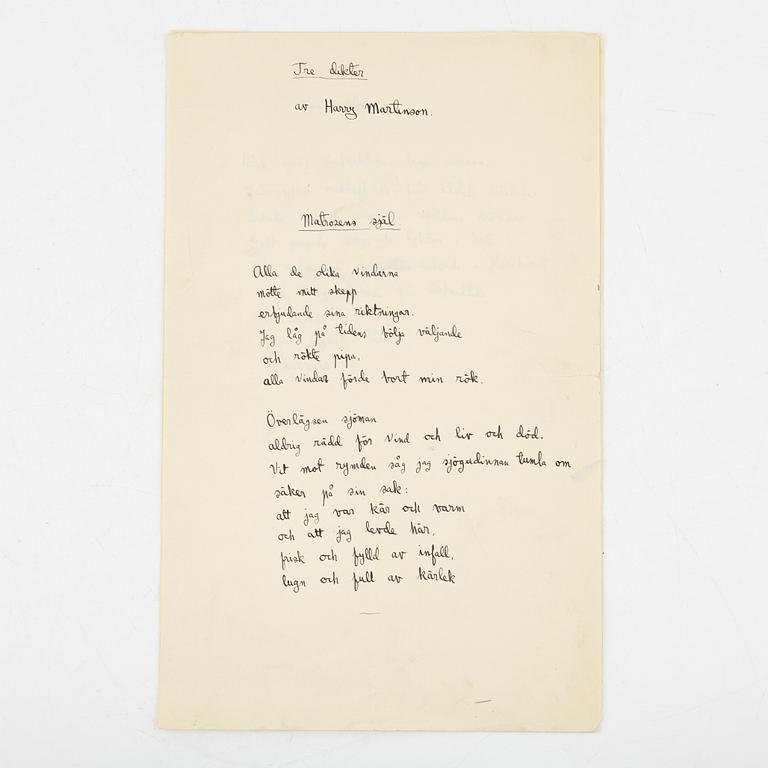 Tre dikter
av Harry Martinson.
Matrosens själ
Alla de olika vindarna
mötte mitt skepp
erbjudande sina riktningar.
Jag låg på tidens bölja väljande
och rökte pipa,
alla vindar förde bort min rök.
Överlägsen sjöman
aldrig rädd för vind och liv och död.
Vit mot rymden såg jag sjögudinnan tumla om
säker på sin sak:
att jag var kär och varm
och att jag levde här,
frisk och fylld av infall,
lugn och full av kärlek